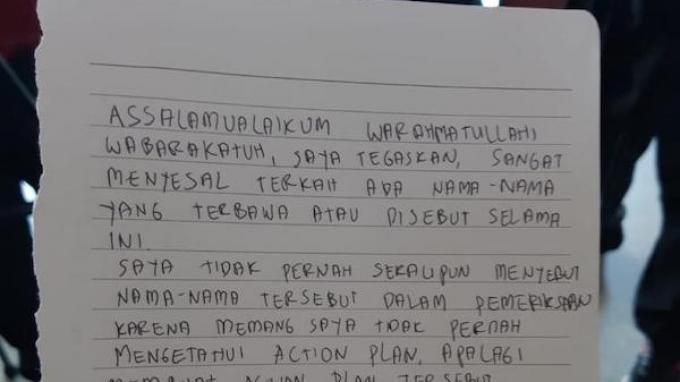 ASSALAMUALAIKUM WARAHMATULLAHI
WABARAKATUH, SAYA TEGASKAN, SANGAT
MENYESAL TERKAIT ADA NAMA-NAMA
YANG TERBAWA ATAU DISEBUT SELAMA
INI.
SAYA TIDAK PERNAH SEKALIPUN MENYEBUT
NAMA-NAMA TERSEBUT DALAM PEMERIKSAAN
KARENA MEMANG SAYA TIDAK PERNAH
MENGETAHUI ACTION PLAN, APALAGI
MEMBUAT ACTION PLAN TERSEBUT